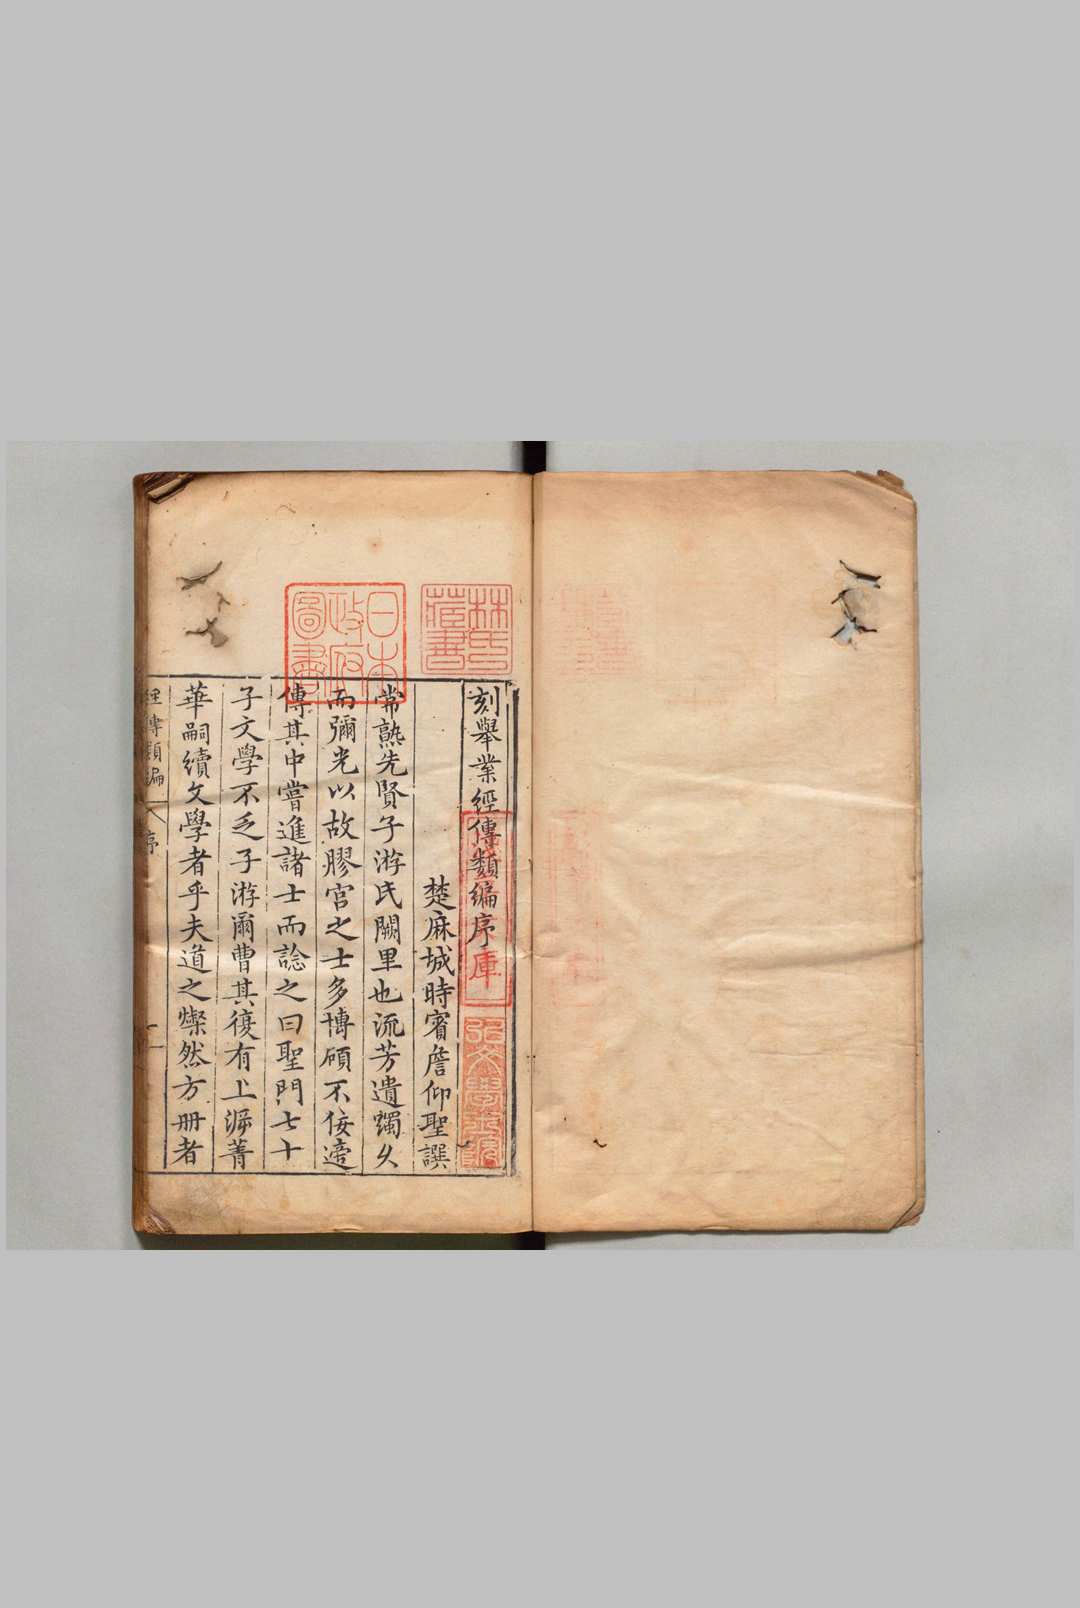 刻舉業經傳類編序
楚麻城時賓詹仰聖譔
常熟先賢子游氏闕里也流芳遺躅久
而彌光以故膠宮之士多博碩不佞遊
傳其中嘗進諸士而諗之曰聖門七十
子文學不乏子游爾曹其復有上遡菁
華嗣續文學者乎夫道之燦然方册者
經傳類編
序
林氏
藏書
日本
政府
圖書
庫